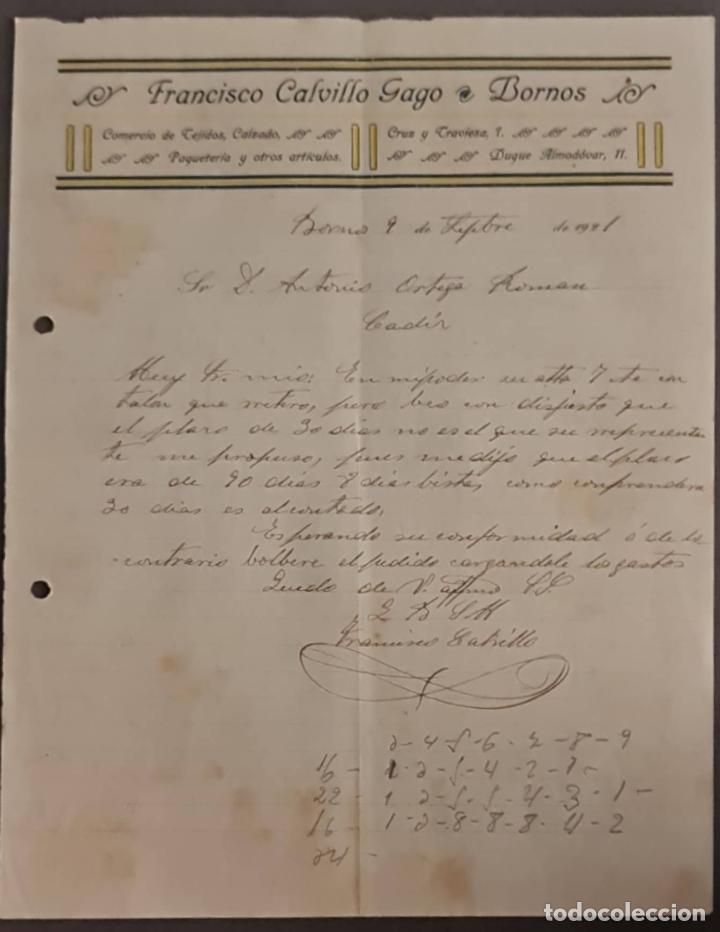 Francisco Calvillo Gago Bornos
Comercio de Tejidos, Calzado,
Paquetería y otros artículos.
Cruz y Traviesa, 1.
Duque Almodóvar, 11.
Bornos 9 de Sepbre de 1921
Sr D. Antonio Ortega Roman
Cadiz
Muy Sr. mio: En mi poder su atta 7 te con
talon que retiro, pero beo con disgusto que
el plazo de 30 dias no es el que su representan
te me propuso, pues me dijo que el plazo
era de 90 dias 8 dias bista, como conprendera
30 dias es al contado,
Esperando su conformidad ó de lo
contrario bolbere el pedido cargandole los gastos
Quedo de V. affmo S.S.
Q B S M
Francisco Calvillo
2-4-5-6-7-8-9
16 - 1-2-5-4-2-1-
22 - 1 2-5-5-4-3-1-
16 - 1-2-8-8-8-4-2
24 -
todocoleccion